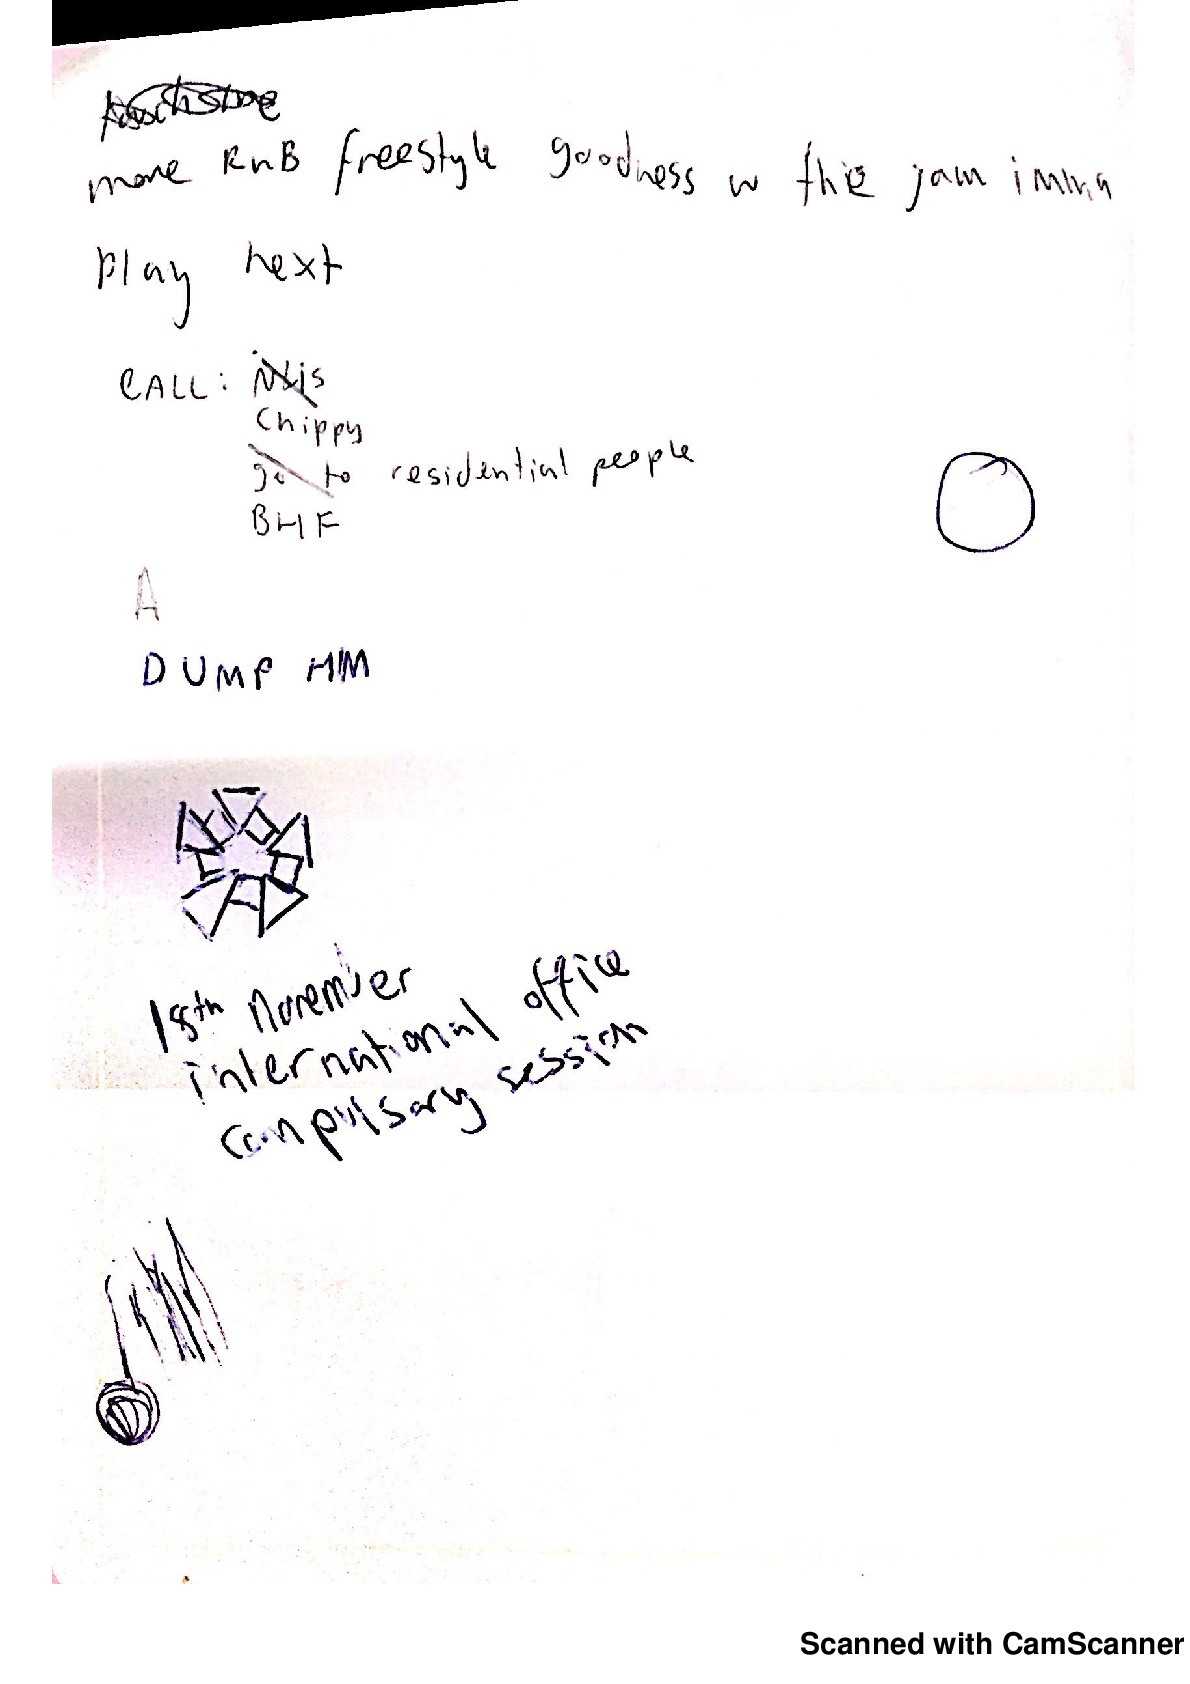 more RnB freestyle goodness w this jam imma
play next
CALL:
Chippy
go to residential people
BHF
A
DUMP HIM
18th November
international office
compulsary session
Scanned with CamScanner